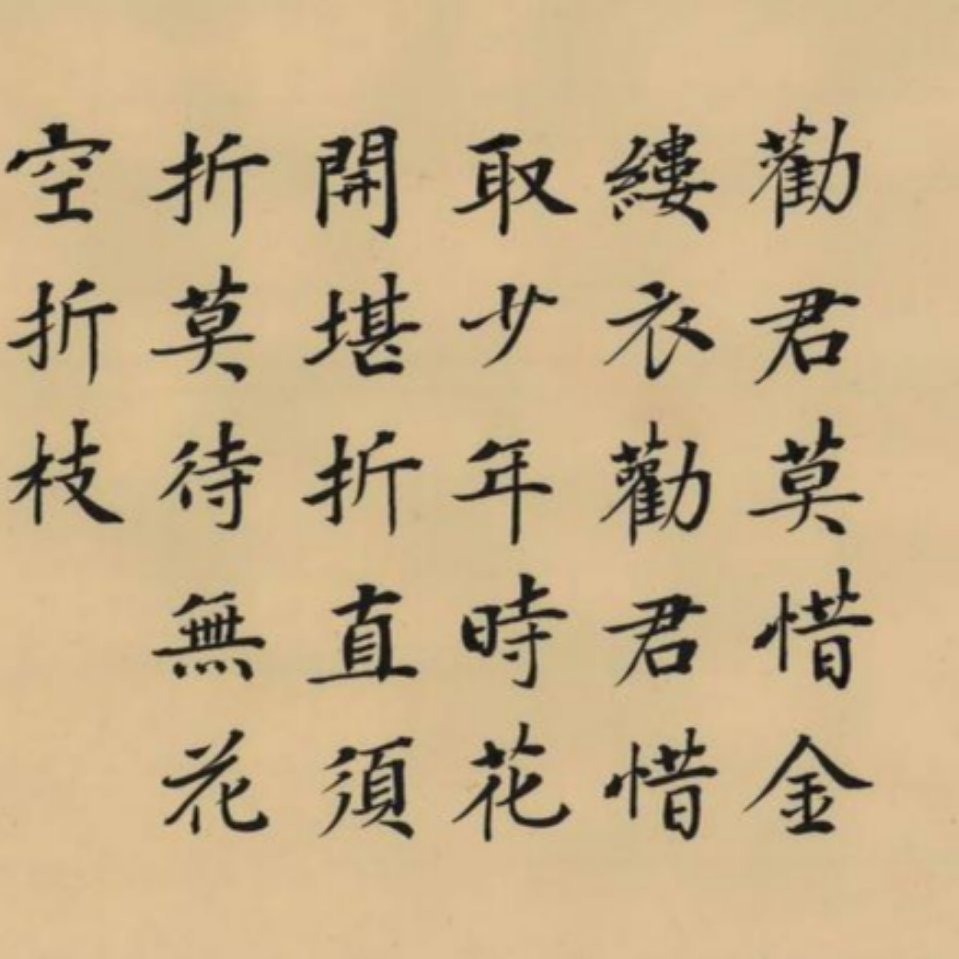 勸君莫惜金
縷衣勸君惜
取少年時花
開堪折直須
折莫待無花
空折枝